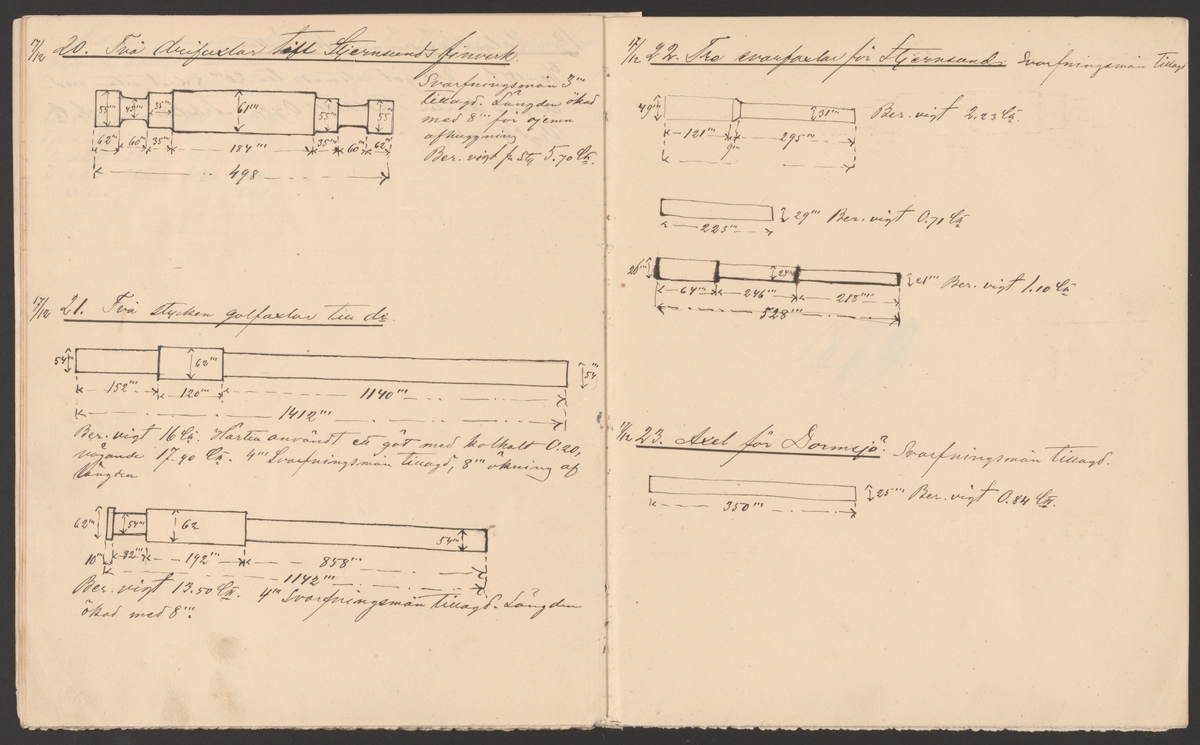 17/12 20. Två drifaxlar till Stjernsunds finverk.
Svarfningsmån 3'''
tillagd. Längden ökad
med 8''' för ojemn
afhuggning
Ber. vigt pr st 5.70 Ctr.
55''' 45''' 35''' 61''' 55''' 55
62''' 60''' 35''' 184''' 35''' 60''' 62'''
498
17/12 21. Två stycken golfaxlar till do
54''' 62''' 54'''
152''' 120''' 1140'''
1412'''
Ber. vigt 16 Ctr. Härtill användt ett göt med kolhalt 0.20,
vägande 17.90 Ctr. 4''' Svarfningsmån tillagd, 8''' ökning af
längden
62''' 54''' 62 54'''
10''' 82''' 192''' 858'''
1142'''
Ber. vigt 13.50 Ctr. 4''' Svarfningsmån tillagd. Längden
ökad med 8'''.
17/12 22. Tre svarfaxlar för Stjernsund. Svarfningsmån tillagd
49''' 31''' Ber. vigt 2.23 Ctr.
121''' 9''' 295'''
29''' Ber. vigt 0.71 Ctr
223'''
26''' 24''' 21''' Ber. vigt 1.10 Ctr
64''' 246''' 218'''
528'''
17/12 23. Axel för Dormsjö. Svarfningsmån tillagd.
25''' Ber. vigt 0.84 Ctr.
350'''